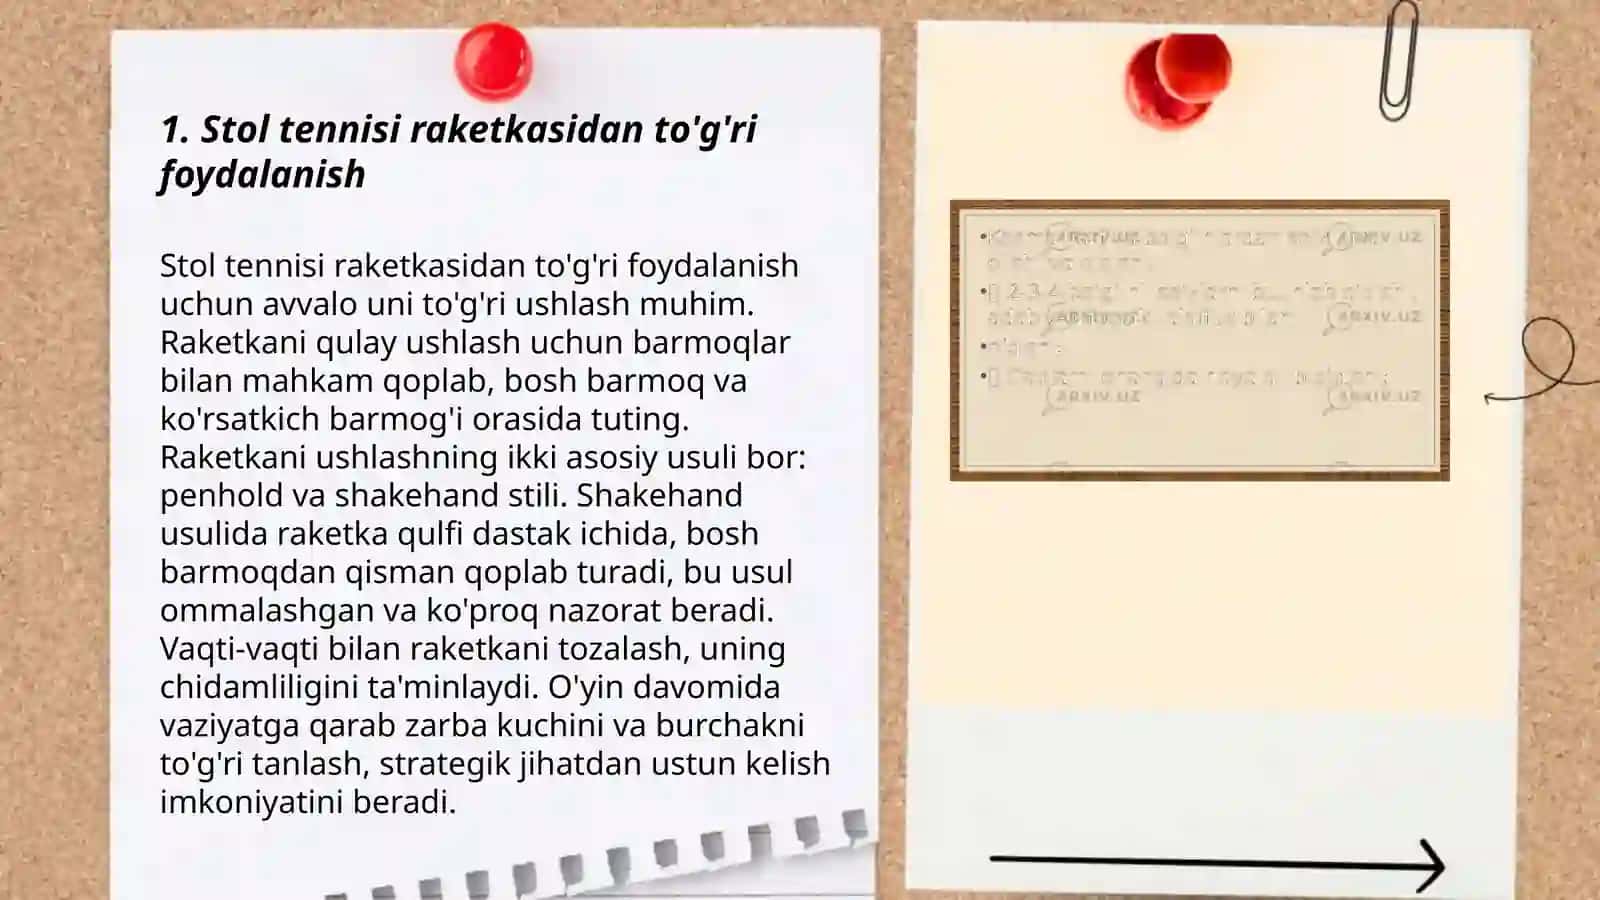 1. Stol tennisi raketkasidan to'g'ri
foydalanish
Stol tennisi raketkasidan to'g'ri foydalanish
uchun avvalo uni to'g'ri ushlash muhim.
Raketkani qulay ushlash uchun barmoqlar
bilan mahkam qoplab, bosh barmoq va
ko'rsatkich barmog'i orasida tuting.
Raketkani ushlashning ikki asosiy usuli bor:
penhold va shakehand stili. Shakehand
usulida raketka qulfi dastak ichida, bosh
barmoqdan qisman qoplab turadi, bu usul
ommalashgan va ko'proq nazorat beradi.
Vaqti-vaqti bilan raketkani tozalash, uning
chidamliligini ta'minlaydi. O'yin davomida
vaziyatga qarab zarba kuchini va burchakni
to'g'ri tanlash, strategik jihatdan ustun kelish
imkoniyatini beradi.
ARXIV.UZ
ARXIV.UZ
ARXIV.UZ ARXIV.UZ